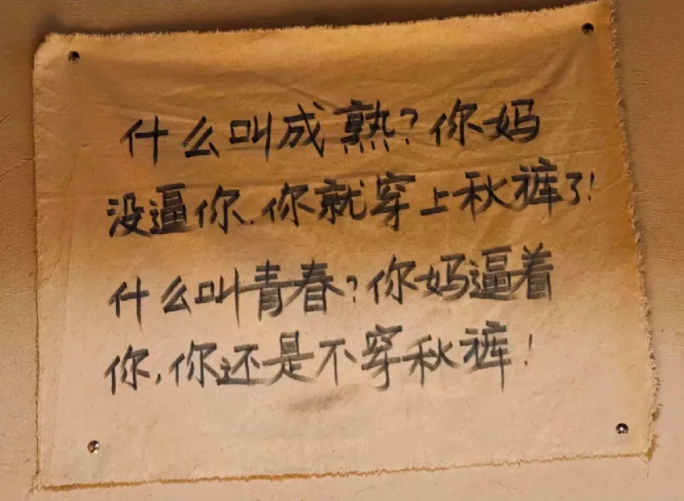 什么叫成熟?你妈
没逼你.你就穿上秋裤了!
什么叫青春?你妈逼着
你,你还是不穿秋裤!